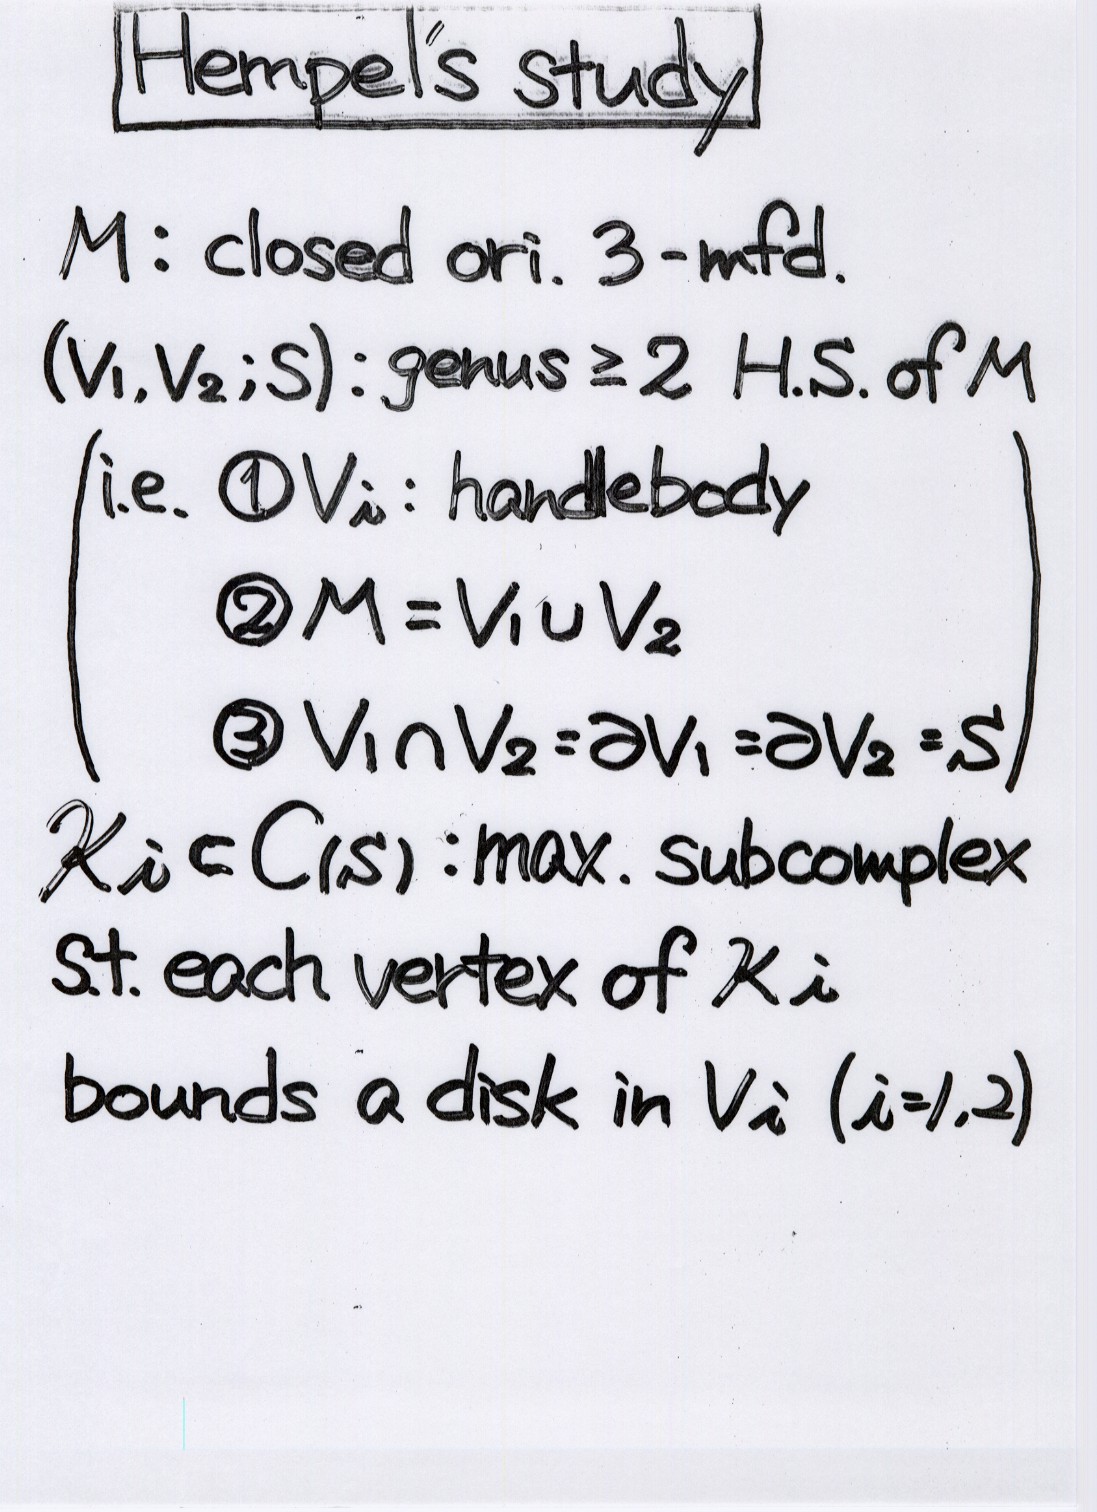 Hempel's study
M: closed ori. 3-mfd.
(V₁, V₂; S): genus ≥ 2 H.S. of M
(i.e. ① Vᵢ: handlebody
② M = V₁ ∪ V₂
③ V₁ ∩ V₂ = ∂V₁ = ∂V₂ = S)
𝒦ᵢ ⊂ C(S) : max. subcomplex
s.t. each vertex of 𝒦ᵢ
bounds a disk in Vᵢ (i=1,2)